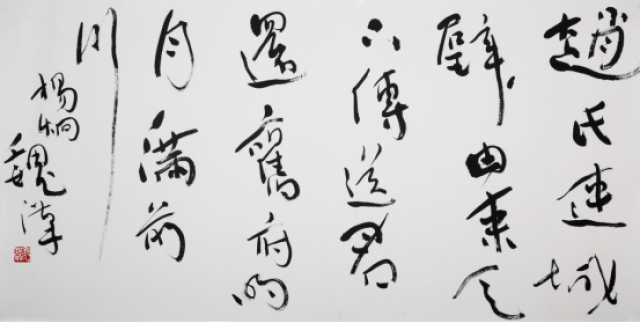 趙氏連城
璧由來天
下傳送君
還舊府明
月滿前
川
楊炯